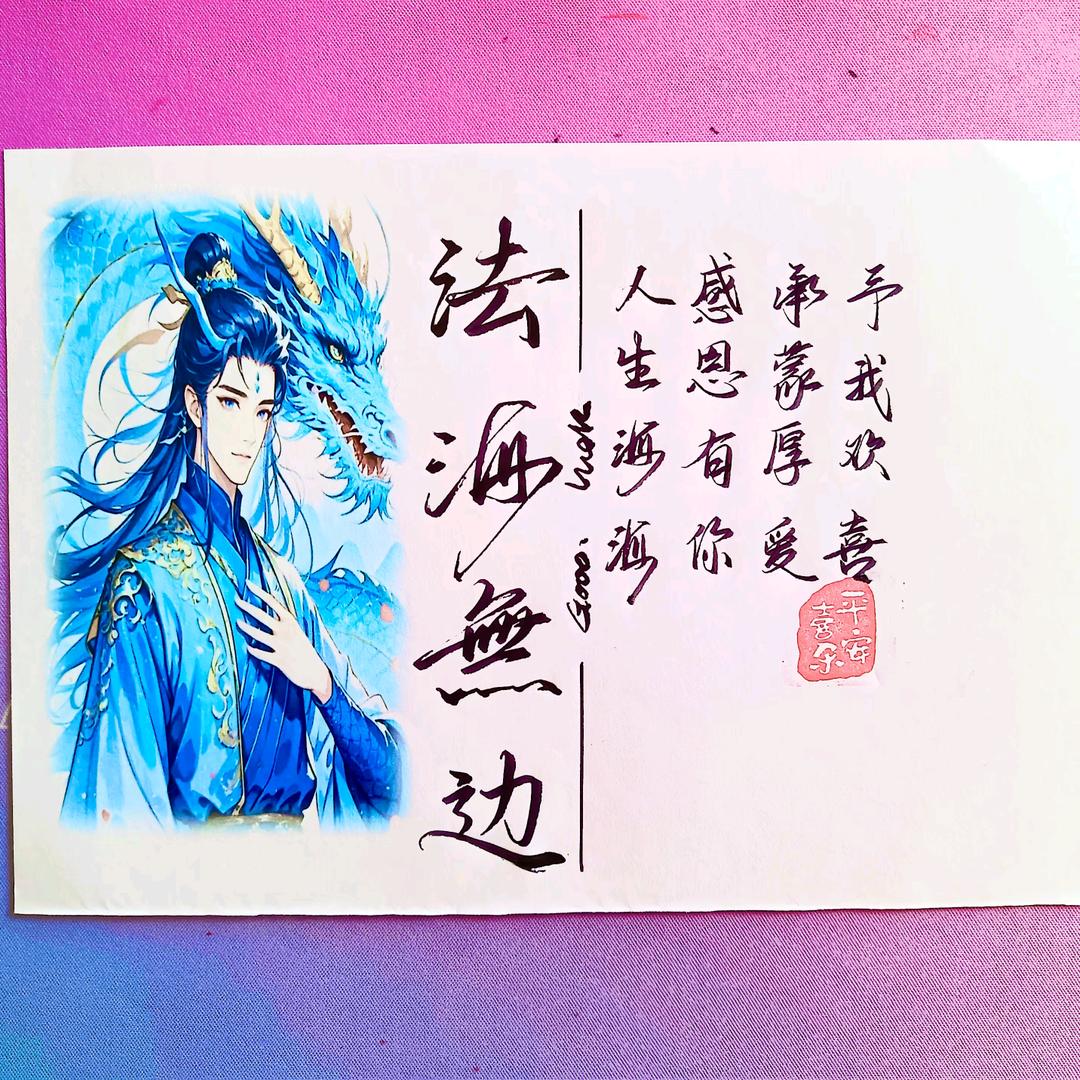 法海無边
Good. luck
人生海海
感恩有你
承蒙厚爱
予我欢喜
平安
喜乐